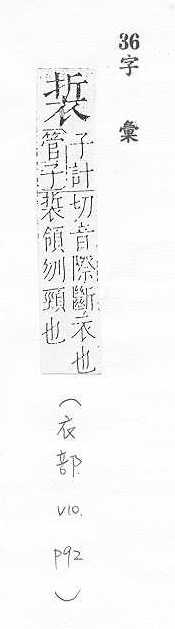 36字彙
裚
子計切音際斷衣也
管子裚領刎頸也
（衣部 V10. P92）